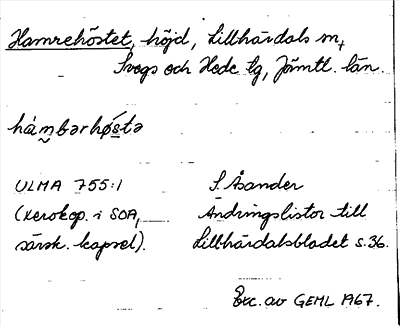 Hamrehöstet, höjd, Lillhärdals sn,
Svegs och Hede tg, Jämtl. län.
hám̬bərhǿstə
ULMA 755:1
(xerokop. i SOA,
särsk. kapsel).
S. Åsander
Ändringslistor till
Lillhärdalsbladet s.36.
Exc. av GEHL 1967.